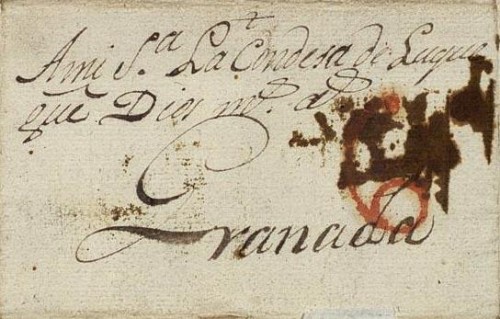 Ami S.ª La Condesa de Luque
que Dios m.s a.s
Granada